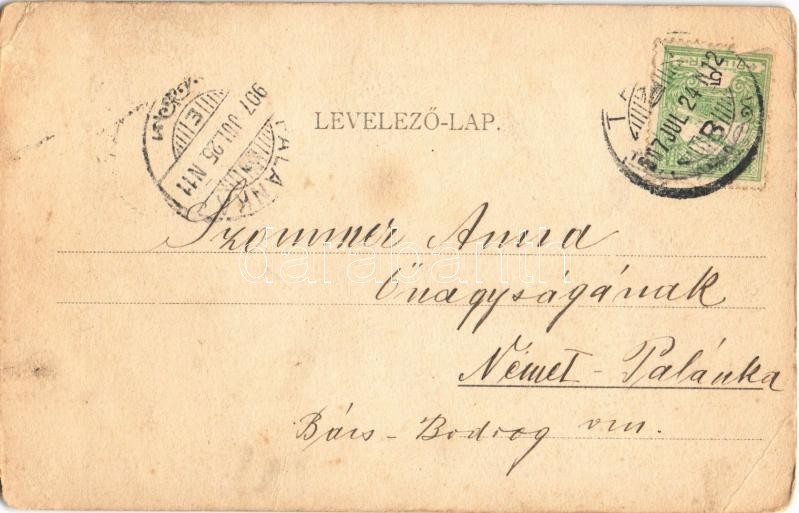 LEVELEZŐ-LAP.
907 JUL. 25. N 11
PALÁNK
907 JUL 24 N 12
B
Szommer Anna
Őnagyságának
Német-Palánka
Bács-Bodrog vm.
darabanth